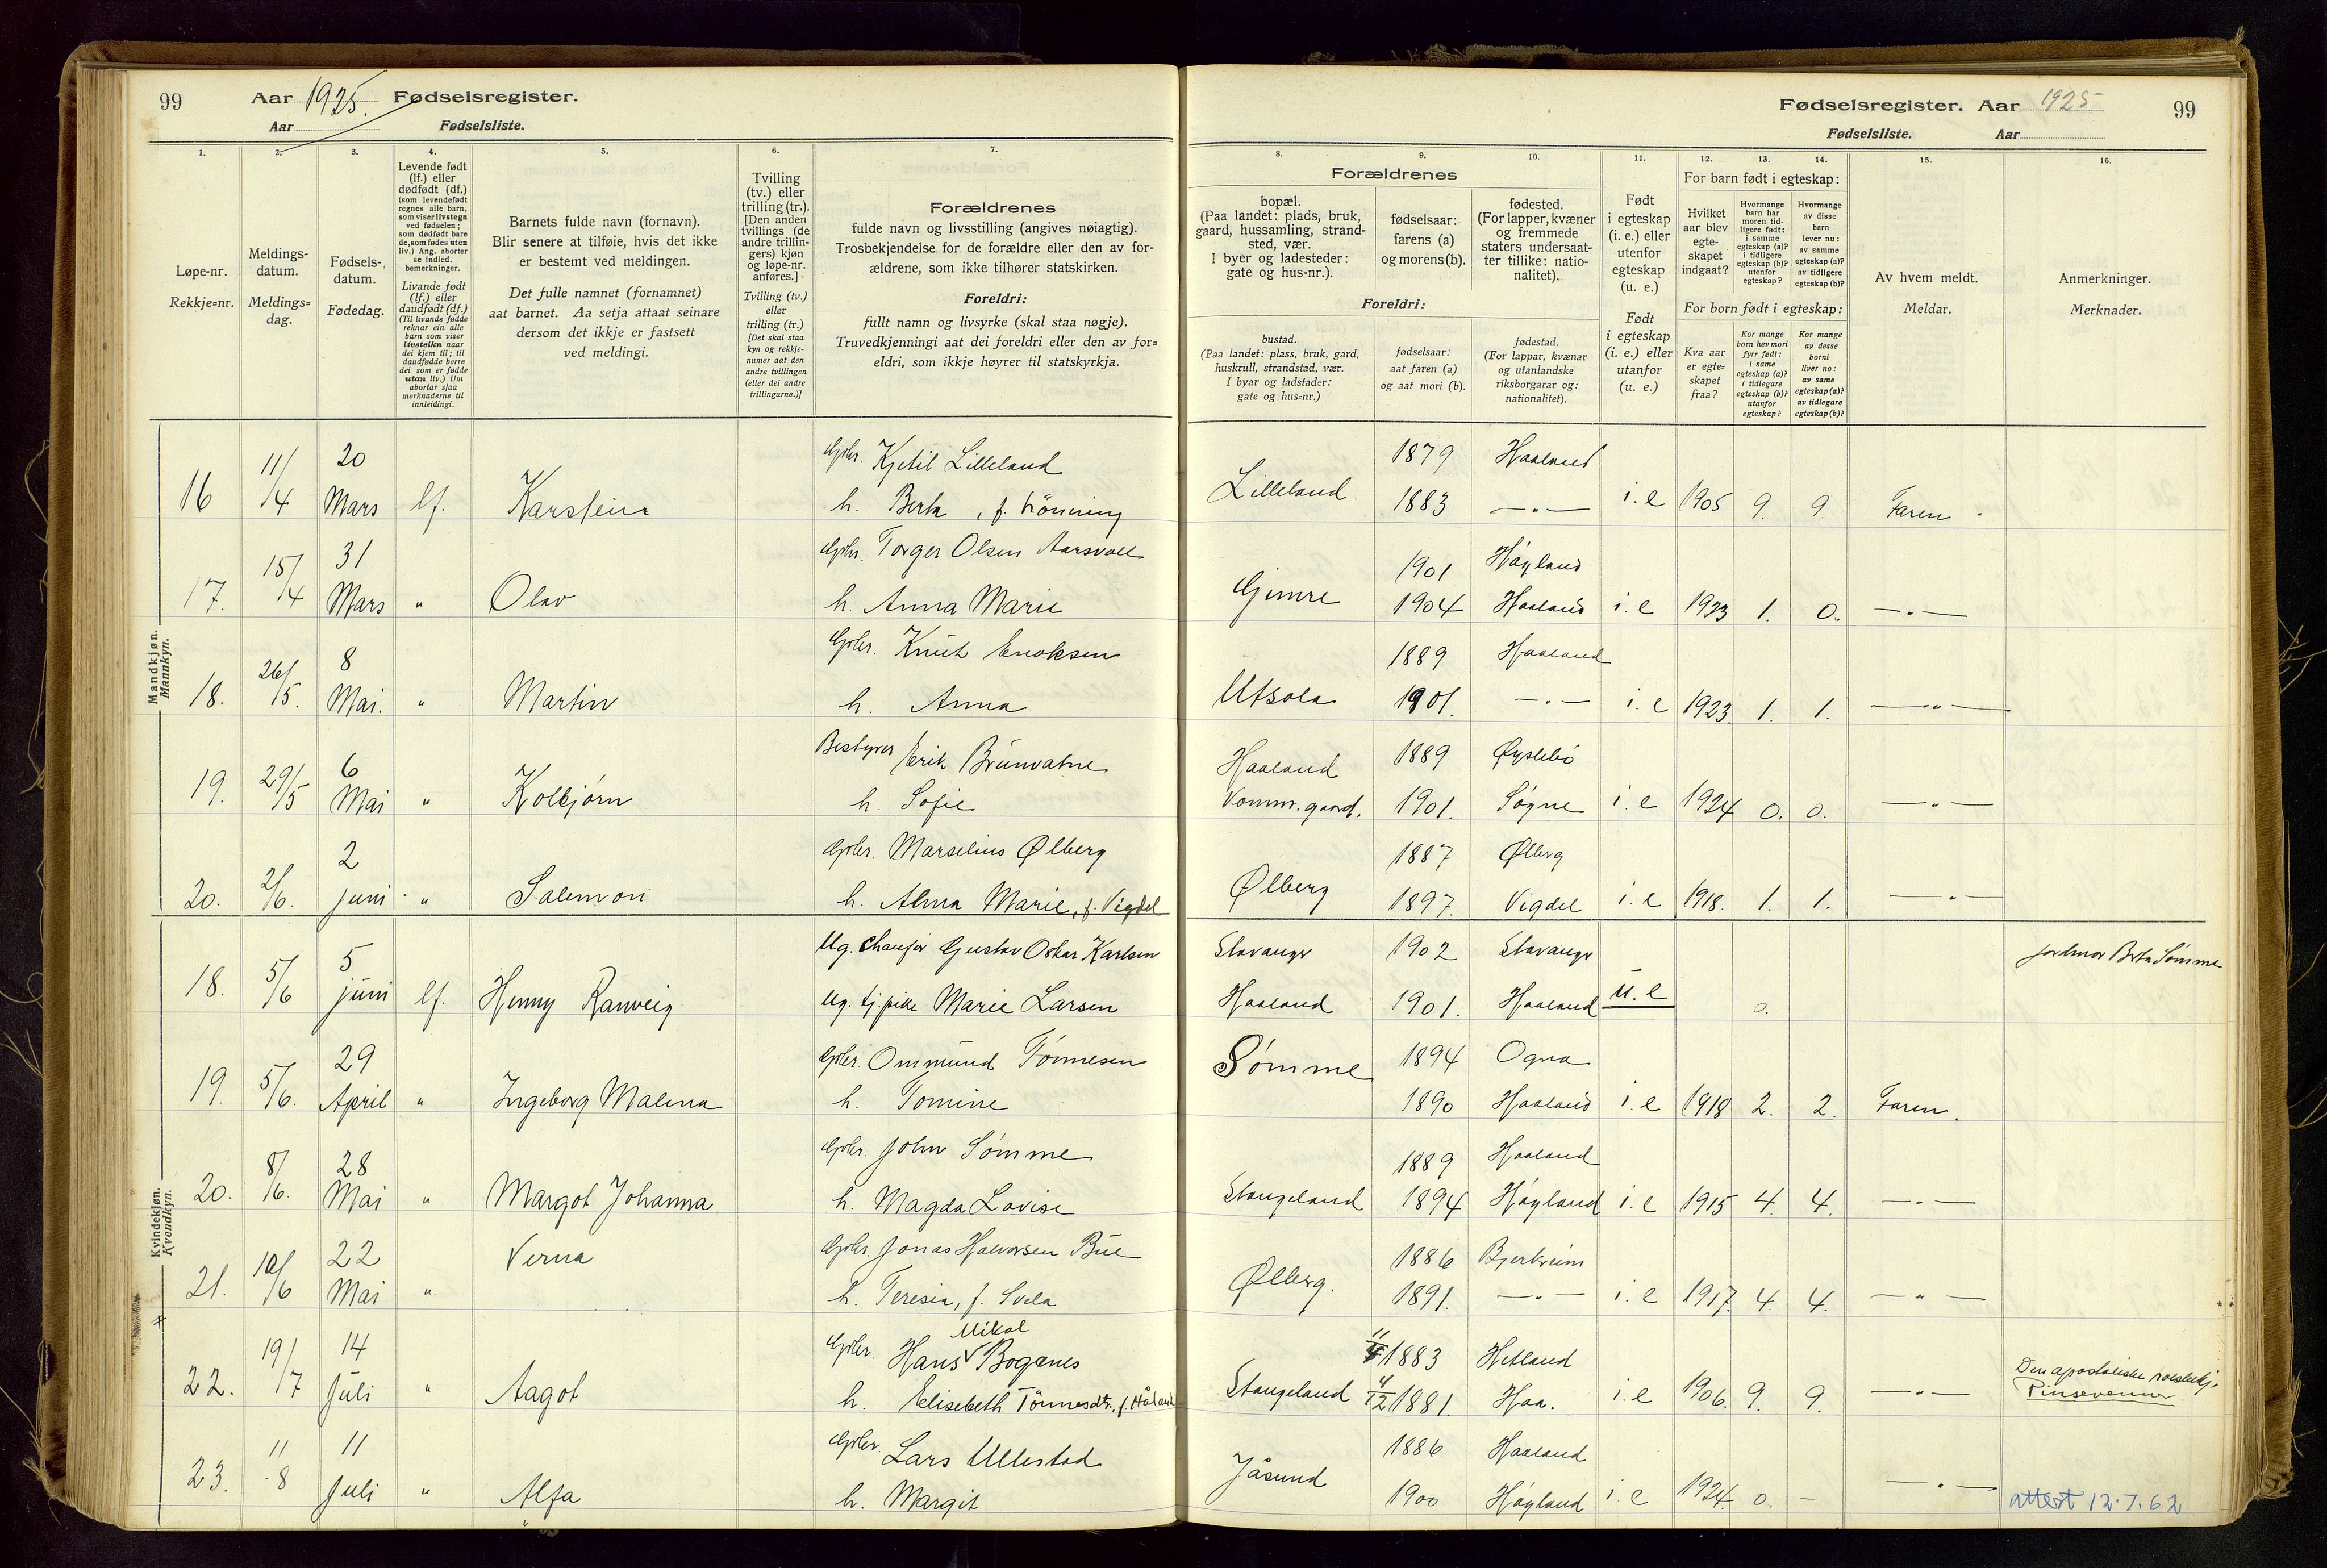 99 Aar 1925. Fødselsregister.
Aar Fødselsliste.
Fødselsregister. Aar 1925 99
Fødselsliste. Aar
1. 2. 3. 4. 5. 6. 7. 8. 9. 10. 11. 12. 13. 14. 15. 16.
Løpe-nr.
Rekkje=nr.
Meldings-
datum.
Meldings=
dag.
Fødsels-
datum.
Fødedag.
Levende født
(lf.) eller
dødfødt (df.)
(som levendefødt
regnes alle barn,
som viser livstegn
ved fødselen;
som dødfødt bare
de, som fødes uten
liv.) Ang. aborter
se indled.
bemerkninger.
Livande født
(lf.) eller
daudfødt (df.)
(Til livande fødde
reknar ein alle
barn som viser
livsteikn naar
dei kjem til; til
daudfødde berre
dei som er fødde
utan liv.) Um
abortar sjaa
merknaderne til
innleidingi.
Barnets fulde navn (fornavn).
Blir senere at tilføie, hvis det ikke
er bestemt ved meldingen.
Det fulle namnet (fornamnet)
aat barnet. Aa setja attaat seinare
dersom det ikkje er fastsett
ved meldingi.
Tvilling
(tv.) eller
trilling (tr.).
[Den anden
tvillings (de
andre trillin-
gers) kjøn
og løpe-nr.
anføres.]
Tvilling (tv.)
eller
trilling (tr.)
[Det skal staa
kyn og rekkje-
numer aat den
andre tvillingen
(eller dei andre
trillingarne.)]
Forældrenes
fulde navn og livsstilling (angives nøiagtig).
Trosbekjendelse for de forældre eller den av for-
ældrene, som ikke tilhører statskirken.
Foreldri:
fullt namn og livsyrke (skal staa nøgje).
Truvedkjenningi aat dei foreldri eller den av for=
eldri, som ikkje høyrer til statskyrkja.
Forældrenes
bopæl.
(Paa landet: plads, bruk,
gaard, hussamling, strand-
sted, vær.
I byer og ladesteder:
gate og hus-nr.).
fødselsaar:
farens (a)
og morens (b).
fødested.
(For lapper, kvæner
og fremmede
staters undersaat-
ter tillike: natio-
nalitet).
Foreldri:
bustad.
(Paa landet: plass, bruk, gard,
huskrull, strandstad, vær.
I byar og ladstader:
gate og hus=nr.)
fødselsaar:
aat faren (a)
og aat mori (b).
fødestad.
(For lappar, kvænar
og utanlandske
riksborgarar og:
nationalitet).
Født
i egteskap
(i. e.) eller
utenfor
egteskap
(u. e.)
Født
i egteskap
(i. e.) eller
utanfor
(u. e.)
For barn født i egteskap:
Hvilket
aar blev
egte-
skapet
indgaat?
Hvormange
barn har
moren tid-
ligere født:
i samme
egteskap (a)?
i tidligere
egteskap (b)?
utenfor
egteskap?
Hvormange
av disse
barn
lever nu:
av samme
egteskap (a)?
av tidligere
egteskap (b)?
For born født i egteskap:
Kva aar
er egte=
skapet
fraa?
Kor mange
born hev mori
fyrr født:
i same
egteskap (a)?
i tidlegare
egteskap (b)?
utanfor
egteskap?
Kor mange
av desse
borni
liver no:
av same
egteskap (a)?
av tidlegare
egteskap (b)?
Av hvem meldt.
Meldar.
Anmerkninger.
Merknader.
Mandkjøn.
Mannkyn.
Gbr. Kjetil Lilleland 1879 Haaland
16 11/4 20 Mars lf. Karstein h. Berta, f. Lönning Lilleland 1883 —"— i. e 1905 9. 9. Faren
Gbr. Torger Olsen Aarsvoll 1901 Høyland
17. 15/4 31 Mars " Olav h. Anna Marie Gimre 1904 Haaland i. e 1923 1. 0. —"—
Gbr. Knut Enoksen 1889 Haaland
18. 26/5. 8 Mai. " Martin h. Anna Utsola 1901. —"— i. e 1923. 1. 1. —"—
Bestyrer Erik Brunvatne Haaland 1889 Øyslebö
19. 29/5 6 Mai " Kolbjørn h. Sofie Komm. gaard. 1901. Søgne i. e 1924 0. 0. —"—
Gbr. Marselius Ølberg 1887 Ølberg
20. 2/6. 2 juni " Salemon h. Alma Marie, f. Vigdel Ølberg 1897. Vigdel i. e 1918. 1. 1. —"—
Kvindekjøn.
Kvendkyn.
Ug. chaufør Gustav Oskar Karlsen Stavanger 1902 Stavanger jordmor Berta Sømme
18. 5/6 5 juni lf. Henny Ranveig Ug. tj.pike Marie Larsen Haaland 1901. Haaland u. e 0.
Gbr. Ommund Tønnesen Sømme 1894 Ogna
19. 5/6. 29 April " Ingeborg Malena h. Tomine 1890 Haaland i. e 1918 2. 2. Faren.
Gbr. John Sømme 1889 Haaland
20. 8/6. 28 Mai " Margot Johanna h. Magda Lovise Stangeland 1894 Høyland i. e 1915 4. 4. —"—
Verna Gbr. Jonas Halvorsen Bue 1886 Bjerkreim
21. 10/6 22 Mai " h. Teresia, f. Svela Ølberg. 1891. —"— i. e 1917. 4. 4. —"—
Mikal
Gbr. Hans Boganes 1883 Hetland Den apostoliske
22. 19/7 14 Juli " Aagot h. Elisebeth Tönnesdtr., f. Håland Stangeland 4/12 1881. Haa. i. e 1906. 9. 9. —"— Pinsevenner.
Gbr. Lars Ullestad 1886 Haaland
23. 11 8 11 Juli " Alfa h. Margit Jåsund 1900 Høyland i. e 1924. 0. - —"— attest 12.7.62